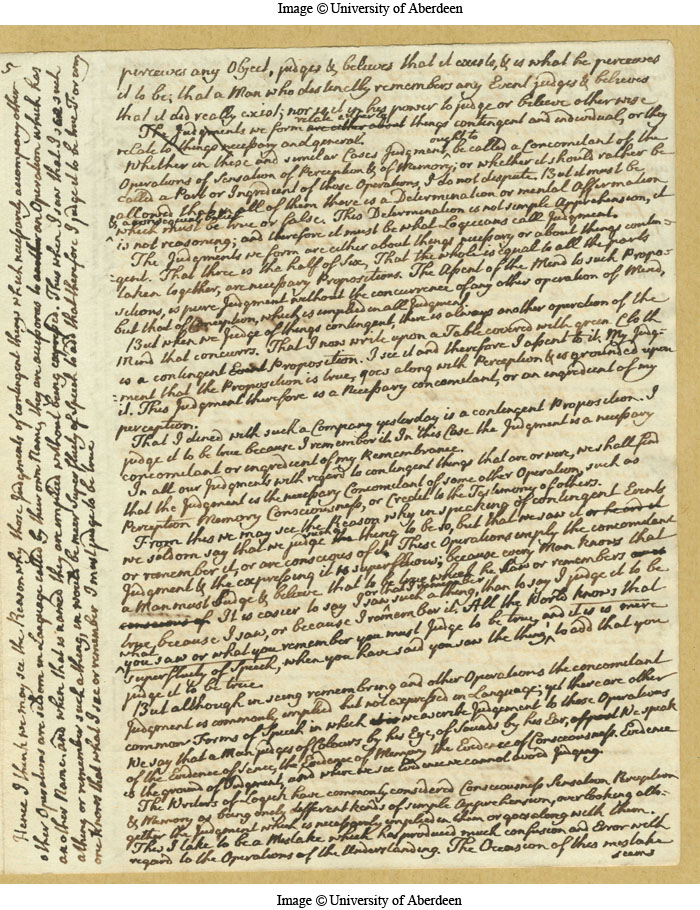 Image © University of Aberdeen
perceives any Object, judges & believes that it exists, & is what he perceives
it to be; that a Man who distinctly remembers any Event judges & believes
that it did really exist; nor is it in his power to judge or believe other wise
relate either to
The Judgments we form are either about things contingent and individual, or they
relate to things necessary and general.
ought to
Whether in these and similar Cases Judgment, be called a Concomitant of the
Operations of Sensation of Perception & of Memory; or whether it should rather be
called a Part or Ingredient of those Operations, I do not dispute. But it must be
allowed that in all of them there is a Determination or mental Affirmation
& a consequent belief
which must be true or false. This Determination is not simple Apprehension, it
is not reasoning; and therefore it must be what Logicians call Judgment.
The Judgments we form are either about things necessary or about things contin-
gent. That three is the half of Six, That the whole is equal to all the parts
taken together, are necessary Propositions. The Assent of the Mind to such Propo-
sitions, is pure Judgment without the concurrence of any other operation of Mind,
but that of Conception, which is implied in all Judgment.
But when we Judge of things contingent, there is always another operation of the
Mind that concurrs. That I now write upon a Table covered with green Cloth
is a contingent Event Proposition. I see it and therefore I assent to it. My Judg-
ment that the Proposition is true, goes along with Perception & is grounded upon
it. This Judgment therefore is a Necessary concomitant, or an ingredient of my
perception.
That I dined with such a Company yesterday is a contingent Proposition. I
judge it to be true because I remember it. In this Case the Judgment is a necessary
concomitant or ingredient of my Remembrance.
In all our Judgments with regard to contingent things that are or were, we shall find
that the Judgment is the necessary Concomitant of some other Operation, such as
Perception Memory Consciousness, or Credit to the Testemony of others.
From this we may see the Reason why in speaking of contingent Events
such a
we seldom say that we judge the thing to be so, but that we saw it or heard it
or remember it, or are conscious of it. These Operations imply the concomitant
Judgment & the expressing it is superfluous; because every Man knows that
a Man must Judge & believe that to be true which he saw or remembers
or that I remember
It is easier to say I saw such a thing, than to say I judge it to be
true, because I saw, or because I remember it. All the World knows that
what
you saw or what you remember you must Judge to be true, and it is is mere
Superfluity of Speech, when you have said you saw the thing, to add that you
judge it to be true.
But although in seing remembring and other Operations the concomitant
Judgment is commonly implied but not expressed in Language; yet there are other
common Forms of Speech in which we ascribe Judgement to those Operations
We say that a Man judges of Colours by his Eye, of Sounds by his Ear, We speak
of the Evidence of Sense, the Evidence of Memory the Evidence of Consciousness. Evidence
is the ground of Judgment, and where we see Evidence we cannot avoid Judging.
The Writers of Logick have commonly considered Consciousness Sensation Perception
& Memory as being only different kinds of simple Apprehension, overlooking alto-
gether the Judgment which is necessarly implied in them or goes along with them
This I take to be a Mistake which has produced much confusion and Error with
regard to the Operations of the Understanding. The Occasion of this mistake
seems
5
Hence I think we may see the Reason why those Judgments of contingent things which necessarly accompany other
other Operations are seldom in Language called by their own Name; they are accessories to another an Operation which has
another Name, and when that is named they are implied without being expressed. Thus when I say that I saw such
a thing or remember such a thing, it would be mere Superfluity of Speech to add that therefore I judge it to be true For every
one knows that what I see or remember I must judge to be true
Image © University of Aberdeen